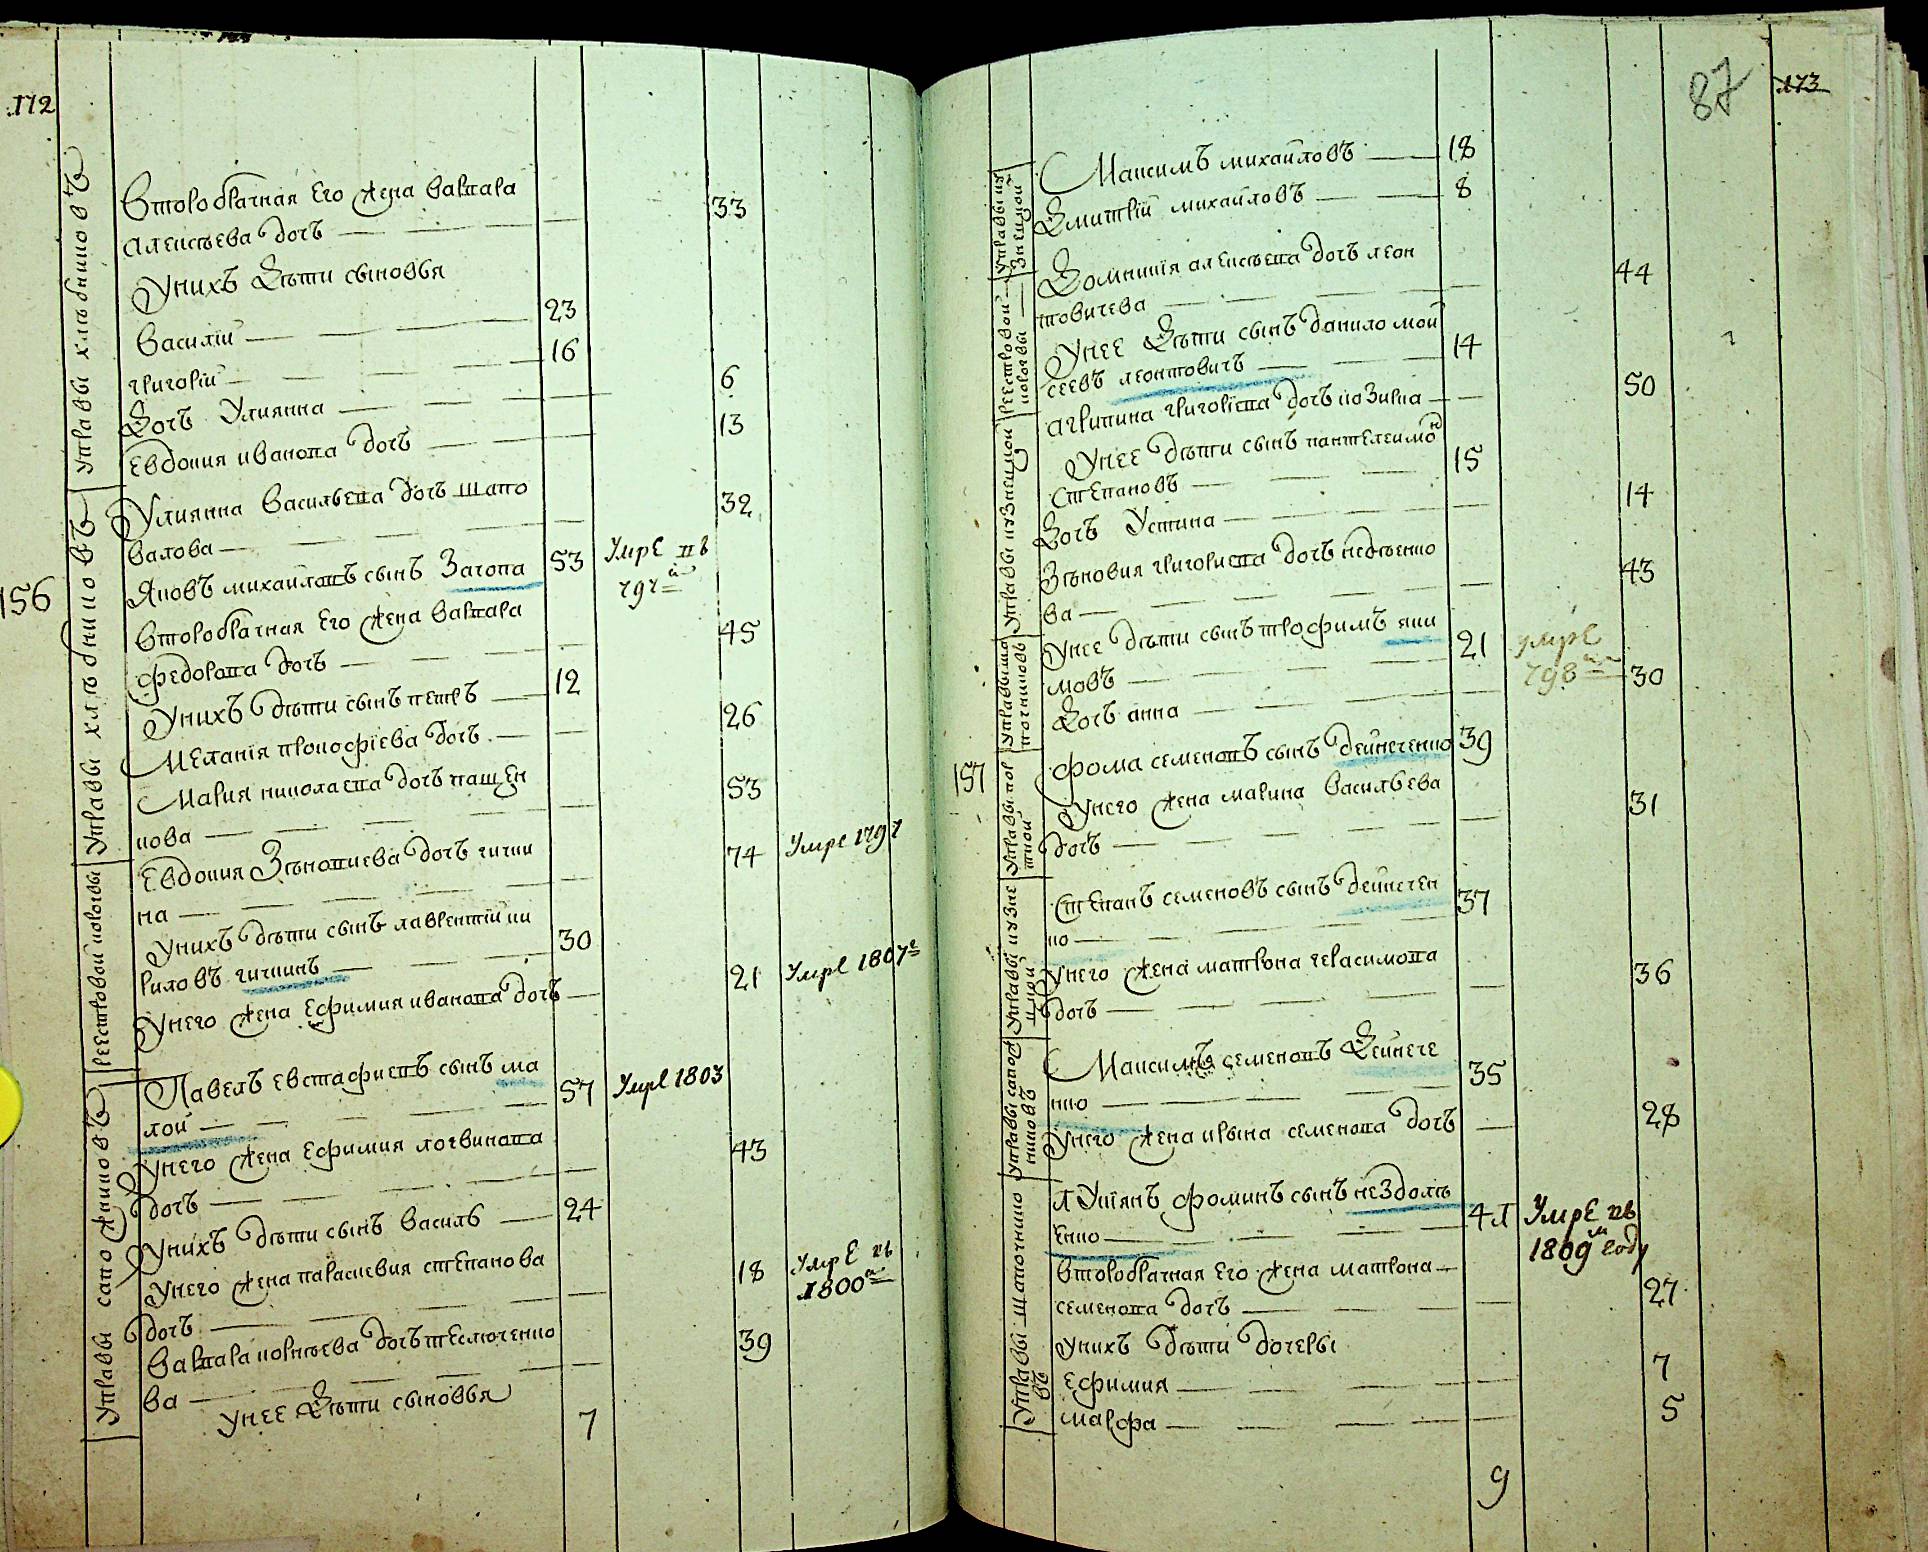 172
Управы хлѣбниковъ
Второбрачная его жена варвара
алексѣева дочь 33
Унихъ Дѣти сыновья
Василій 23
григорій 16
Дочь Улиянна 6
Евдокия иванова дочь 13
Управы хлѣбниковъ
Улиянна Васильева дочь шапо
валова 32
156 Яковъ михайловъ сынъ Загона 53 Умре въ
797й
Второбрачная его жена варвара
федорова дочь 45
Унихъ дѣти сынъ петръ 12
Меланія прокофіева дочь 26
Мария николаева дочь пащен
кова 53
реестровой коровы
Евдокия Зѣновиева дочь гички
на 74 Умре 1797
Унихъ дѣти сынъ лаврентій ки
риловъ гичкинъ 30
Унего жена ефимия иванова дочь 21 Умре 1807г
Управы сапожниковъ
Павелъ евстафиевъ сынъ ма
лой 57 Умре 1803
Унего жена ефимия логвинова
дочь 43
Унихъ дѣти сынъ василь 24
Унего жена параскевия степанова
дочь 18 Умре въ
1800м
Варвара корнѣева дочь теслюченко
ва 39
Унее Дѣти сыновья
7
87 173
Управы куз
знецкой
Максимъ михайловъ 18
Дмитрій михайловъ 8
Домникія алексѣева дочь леон
товичева 44
Унее Дѣти сынъ данило мой
сеевъ леонтовичъ 14
Управы кузнецкой
агрипина григоріева дочь козирка 50
Унее дѣти сынъ пантелеймон
Степановъ 15
Дочь Устина 14
Зѣновия григориева дочь недѣенко
ва 43
Унее дѣти сынъ трофимъ яки
мовъ 21 умре
798м
Дочь анна 30
157 фома семеновъ сынъ дейнеченко 39
Унего жена марина Васильева
дочь 31
Степанъ семеновъ сынъ дейнечен
ко 37
Унего жена матрона герасимова
дочь 36
Управы сапож
никовъ
Максимъ семеновъ Дейнече
нко 35
Унего жена ирына семенова дочь 28
Управы шапочнико
въ
лукіянъ фоминъ сынъ нездолѣ
енко 41 Умре въ
1809м году
Второбрачная его жена матрона
семенова дочь 27
Унихъ дѣти дочеры
ефимия 7
марфа 5
9